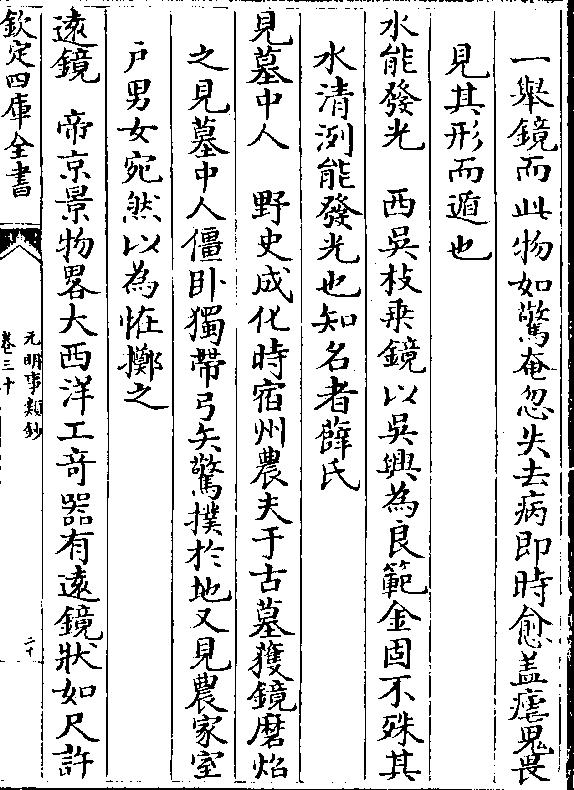 一舉鏡而此物如驚奄忽失去病即時愈盖瘧鬼畏
見其形而遁也
水能發光　西吳枝乗鏡以吳興為良範金固不殊其
水清洌能發光也知名者薛氏
見墓中人　野史成化時宿州農夫于古墓獲鏡磨炤
之見墓中人僵卧獨帶弓矢驚撲於地又見農家室
戶男女宛然以為恠擲之
遠鏡　帝京景物畧大西洋工竒器有遠鏡狀如尺許
欽定四庫全書
元明事類鈔
卷三十
二十